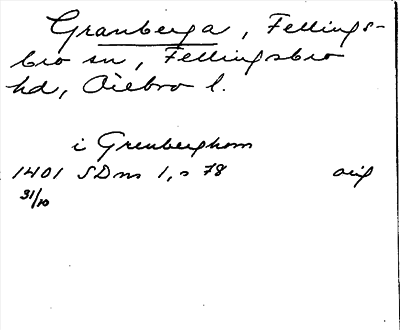 Granberga, Fellings-
bro sn, Fellingsbro
hd, Örebro l.
i Grenberghom
1401 SDns 1, s 78 orig
31/10